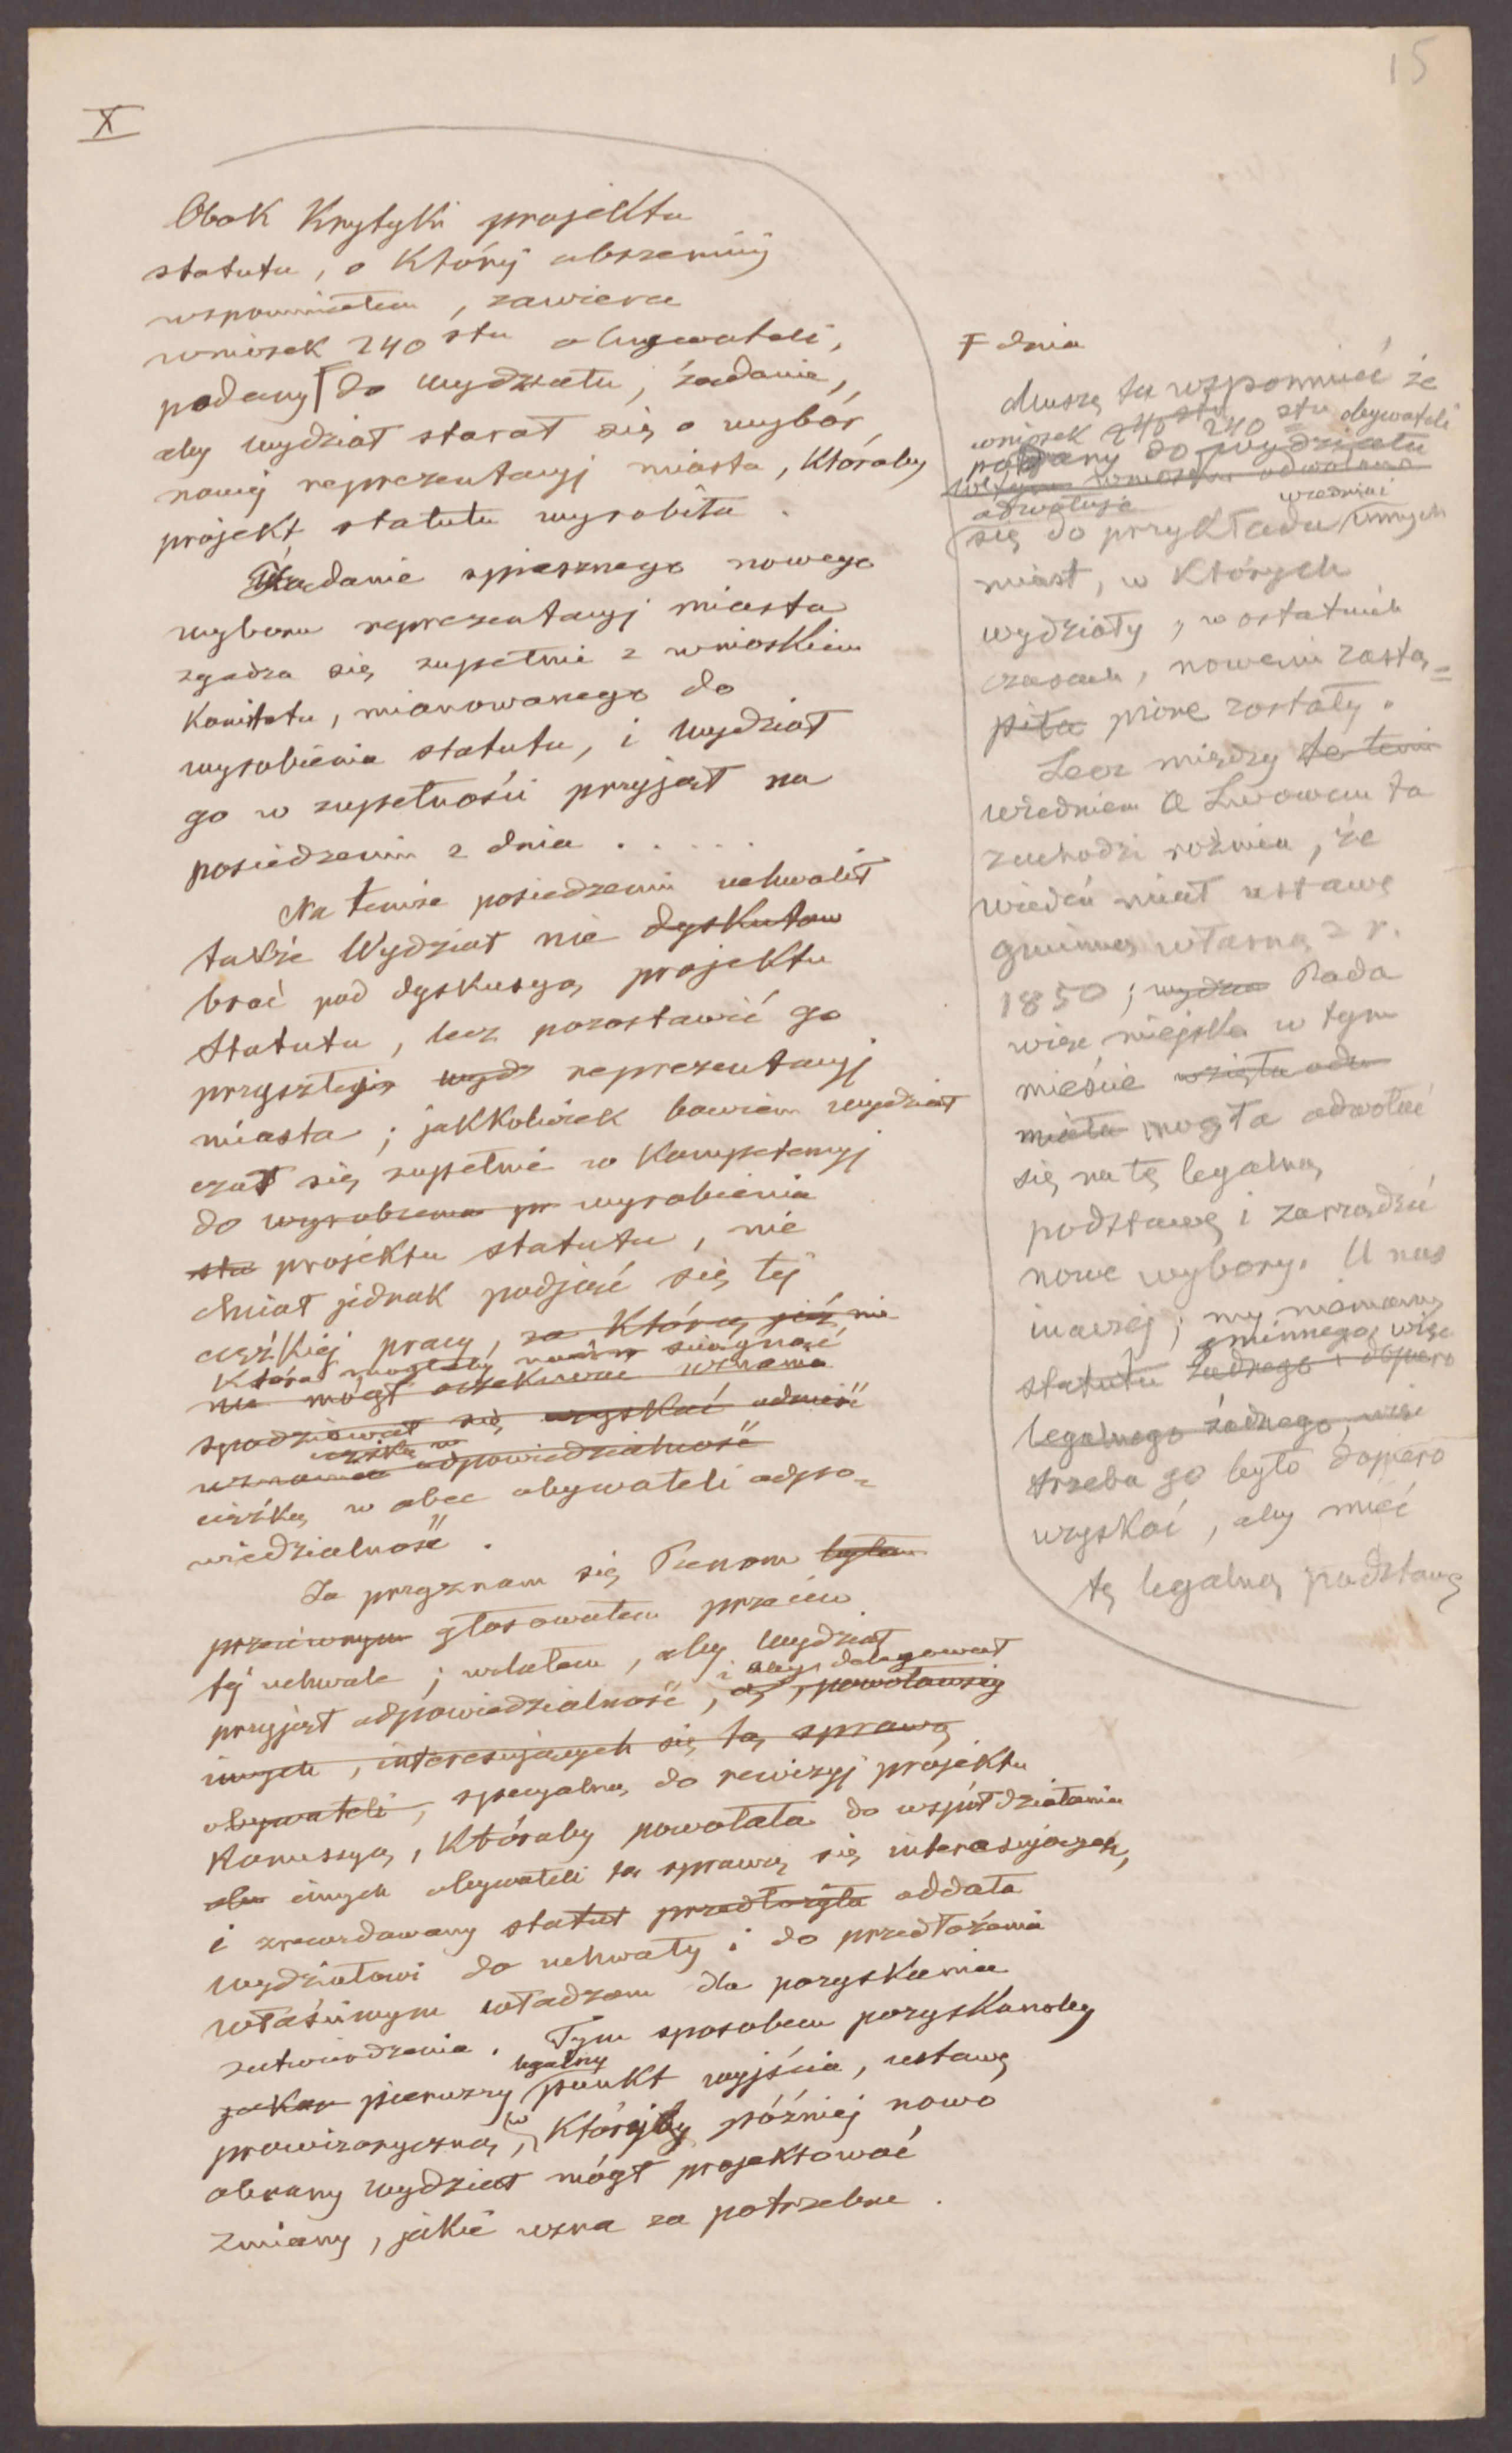 15
X
Obok Krytyki projektu
statutu, o Któréj obszerniéj
wspomniałem, zawiera
wniosek 240 stu obywateli,
podany do wydziału, żądanie,
aby wydział starał się o wybór
nowéj reprezentacyj miasta, Któraby
projekt statutu wyrobiła.
Żądanie spiesznego nowego
wyboru reprezentacyj miasta
zgadza się zupełnie z wnioskiem
Komitetu, mianowanego do
wyrobienia statutu, i wydział
go w zupełności przyjął na
posiedzeniu z dnia . . . . .
Na temże posiedzeniu uchwalił
także Wydział nie dyskutow
brać pod dyskusyą projektu
Statutu, lecz pozostawić go
przyszłéj wydz reprezentacyj
miasta; jakkolwiek bowiem wydział
czuł się zupełnie w Kompetencyj
do wyrobienia pr wyrobienia
sta projektu statutu, nie
chciał jednak podjąć się téj
ciężkiéj pracy, za Którą już nie
Która mogłaby nań ściągnąć
nie mógł oczekiwać uznania
spodziewał się uzyskać odnieść
uznania odpowiedzialność
ciężką w obec obywateli odpo-
wiedzialność.
Ja przyznam się Panom byłem
przeciwnym głosowałem przeciw
téj uchwale; wolałem, aby Wydział
i aby delegował
przyjął odpowiedzialność, powoławszy
innych, interesujących się tą sprawą
obywateli, specyalną do rewizyj projektu
Komissyą, Któraby powołała do współdziałania
innych obywateli tą sprawą się interesujących,
i zrewidowany statut przedłożyła oddała
wydziałowi do uchwały i do przedłożenia
właściwym władzom dla pozyskania
zatwierdzenia. Tym sposobem pozyskanoby
legalny
pierwszy punkt wyjścia, ustawę
prowizoryczną, w Któréjby później nowo
obrany wydział mógł projektować
zmiany, jakie uzna za potrzebne.
F dnia
Muszę tu wspomnieć że
wniosek 240 stu 240 stu obywateli
podany do wydziału
W tym wniosku odwołano
odwołuje
wiednia i
się do przykładu innych
miast, w Których
wydziały, w ostatnich
czasach, nowemi zastą-
piła pione zostały.
Lecz między te temi
Wiedniem a Lwowem ta
zachodzi różnica, że
Wiedeń miał ustawę
gminną własną z r.
1850; wydzia Rada
więc miejska w tym
mieście wzięła odw
miała mogła odwołać
się na tę legalną
podstawę i zarządzić
nowe wybory. U nas
inaczéj; my niemamy
gminnego, więc
statutu żadnego i dopiero
legalnego żadnego, więc
trzeba go było dopiero
uzyskać, aby mieć
tę legalną podstawę